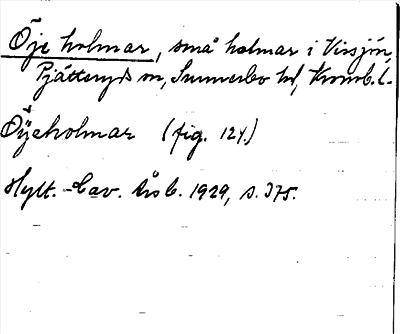 Öje holmar, små holmar i Virsjön,
Pjätteryds sn, Sunnerbo hd, Kronob. l.
Öjeholmar (fig. 124.)
Hylt.-Cav. Årsb. 1929, s. 375.